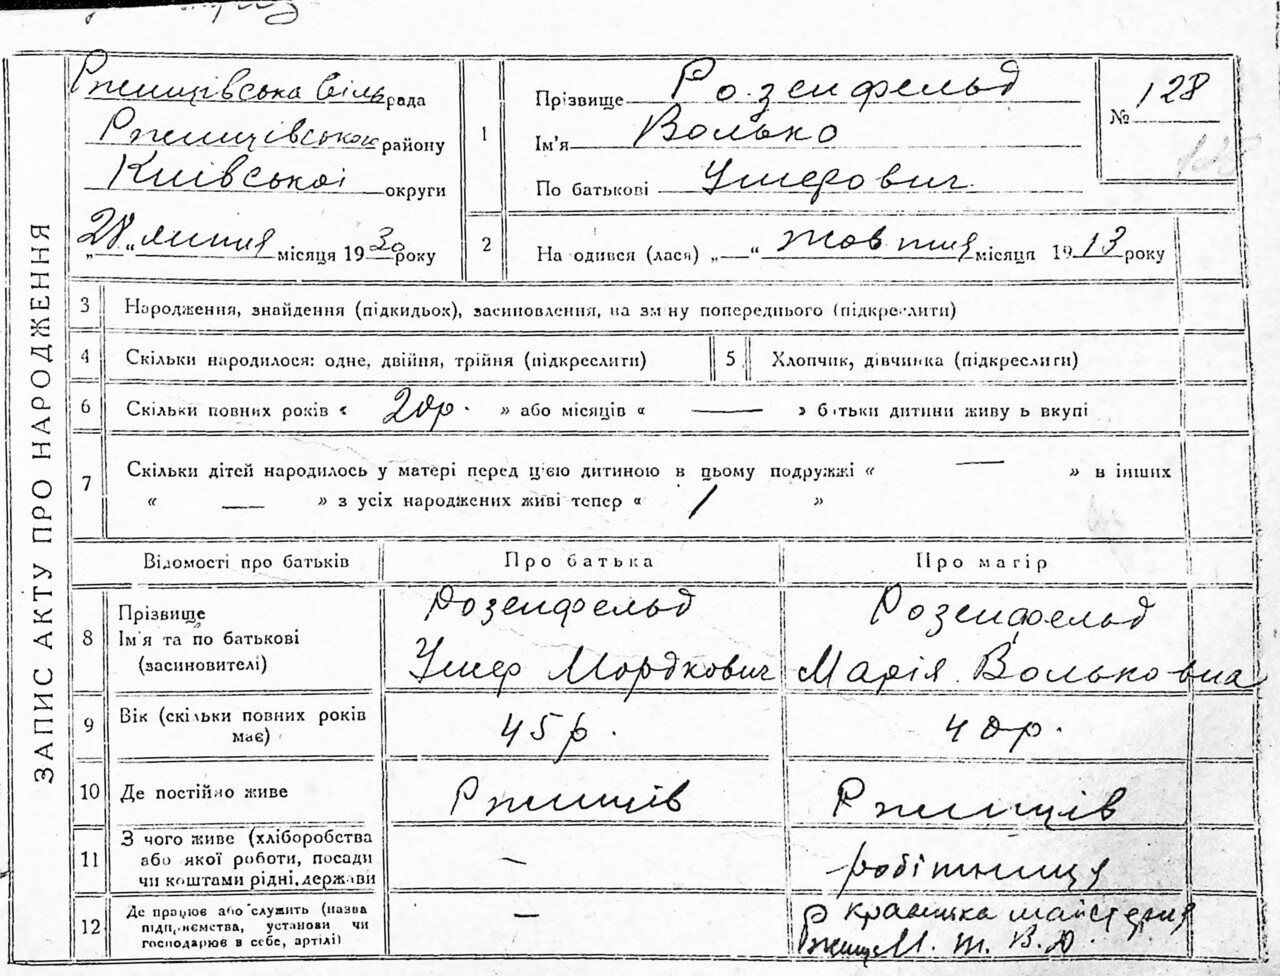 ЗАПИС АКТУ ПРО НАРОДЖЕННЯ
Ржищівська сіль рада
Ржищівського району
Київської округи
„28“ липня місяця 1930 року
1
Прізвище Розенфельд
Ім'я Волько
По батькові Ушерович
№ 128
128
2
На одився (лася) „—“ жовтня місяця 1913 року
3 Народження, знайдення (підкидьок), засиновлення, на зм ну попереднього (підкреслити)
4 Скільки народилося: одне, двійня, трійня (підкреслити)
5 Хлопчик, дівчинка (підкреслити)
6 Скільки повних років « 20р. » або місяців « — » б тьки дитини живу ь вкупі
7 Скільки дітей народилось у матері перед ц'єю дитиною в цьому подружжі « — » в інших
« — » з усіх народжених живі тепер « 1 »
Відомості про батьків Про батька Про матір
8 Прізвище
Ім'я та по батькові
(засиновителі)
Розенфельд
Ушер Мордкович
Розенфельд
Марія Вольковна
9 Вік (скільки повних років
має)
45р.
40р.
10 Де постійно живе Ржищів Ржищів
11 З чого живе (хліборобства
або якої роботи, посади
чи коштами рідні, держави
—
робітниця
12 Де працює або служить (назва
підприємства, установи чи
господарює в себе, артілі)
—
кравецька майстерня
М. Т. В. Д.